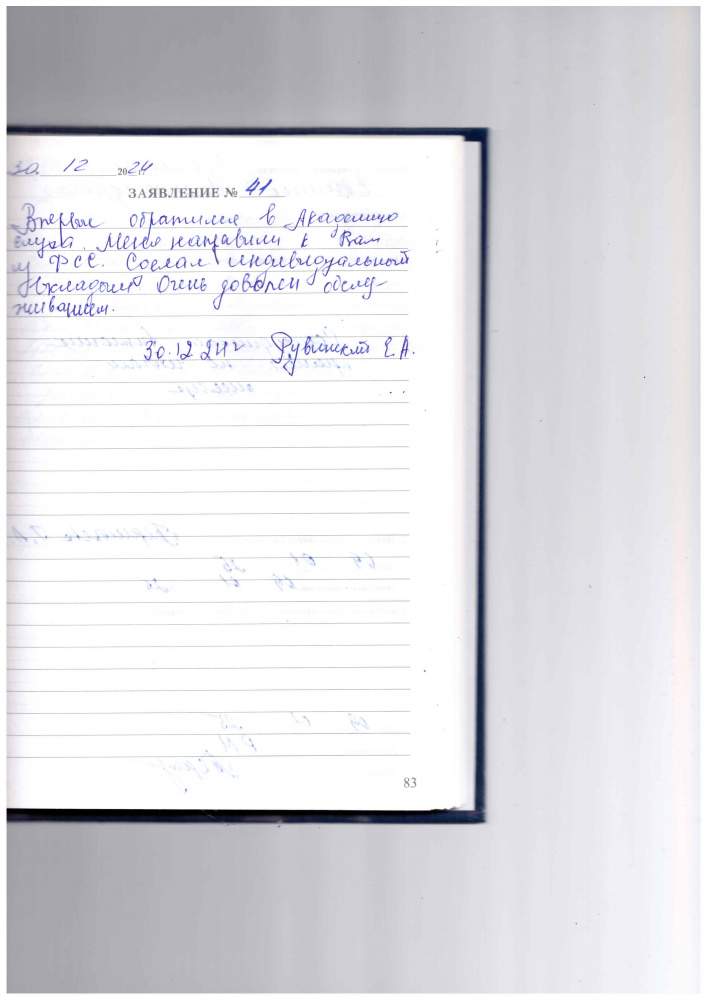 30. 12 2024 г.
ЗАЯВЛЕНИЕ № 41
Впервые обратился в Академию
слуха. Меня направили к Вам
из ФСС. Сделал индивидуальный
вкладыш. Очень доволен обслу-
живанием.
30.12.24г Рувинский Е.А.
83